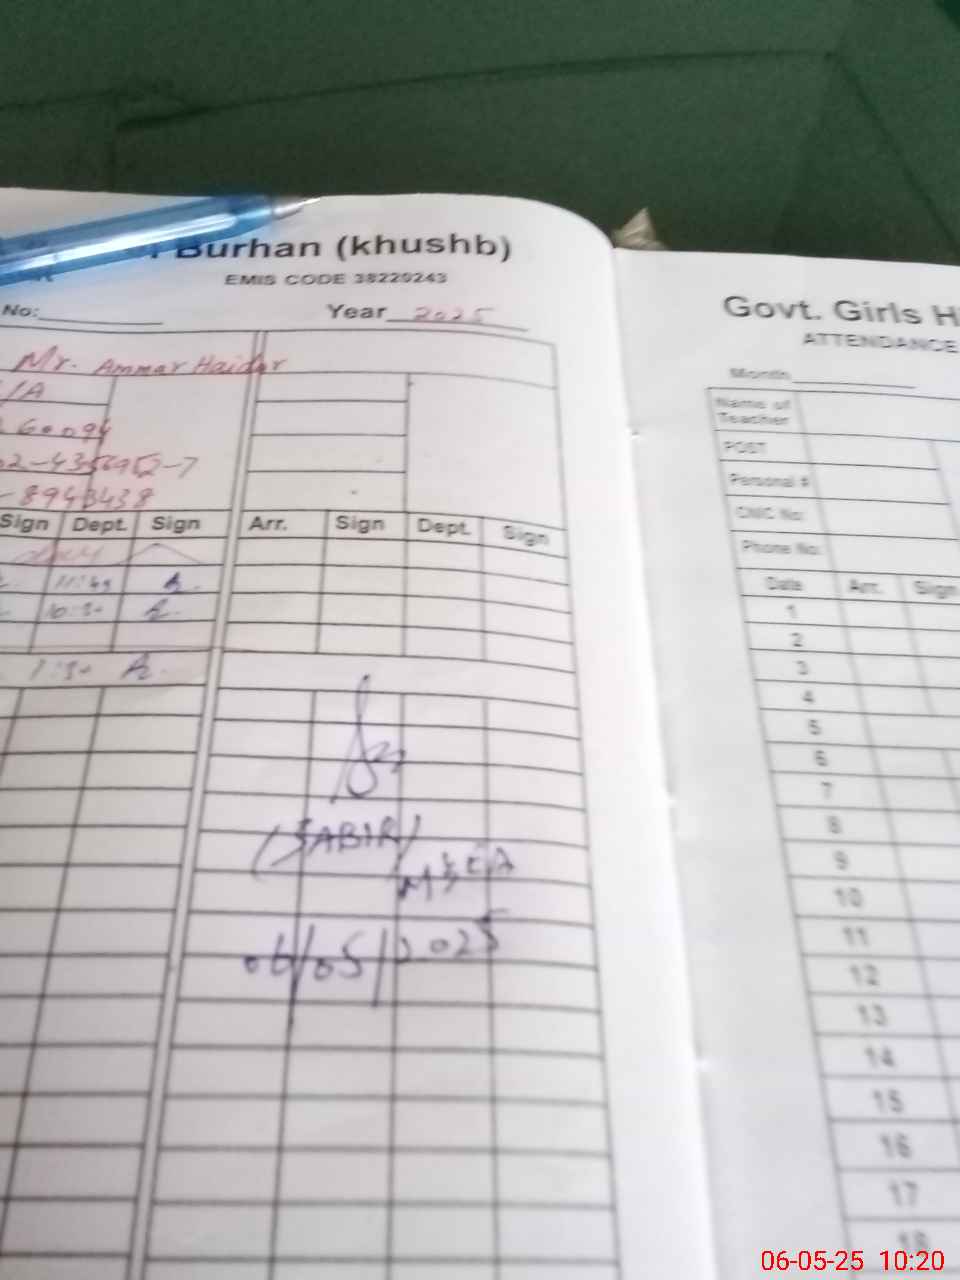 Burhan (khushb)
EMIS CODE 38220243
No:
Year 2025
Mr. Ammar Haidar
/A
60094
02-4356952-7
-8943438
Sign Dept. Sign Arr. Sign Dept. Sign
11:45 A.
10:30 A.
1:30 A.
(SABIR)
06/05/2025
Govt. Girls H
ATTENDANCE
Month
Name of
Teacher
POST
Personal #
CNIC No:
Phone No:
Date Arr. Sign
1
2
3
4
5
6
7
8
9
10
11
12
13
14
15
16
17
18
06-05-25 10:20